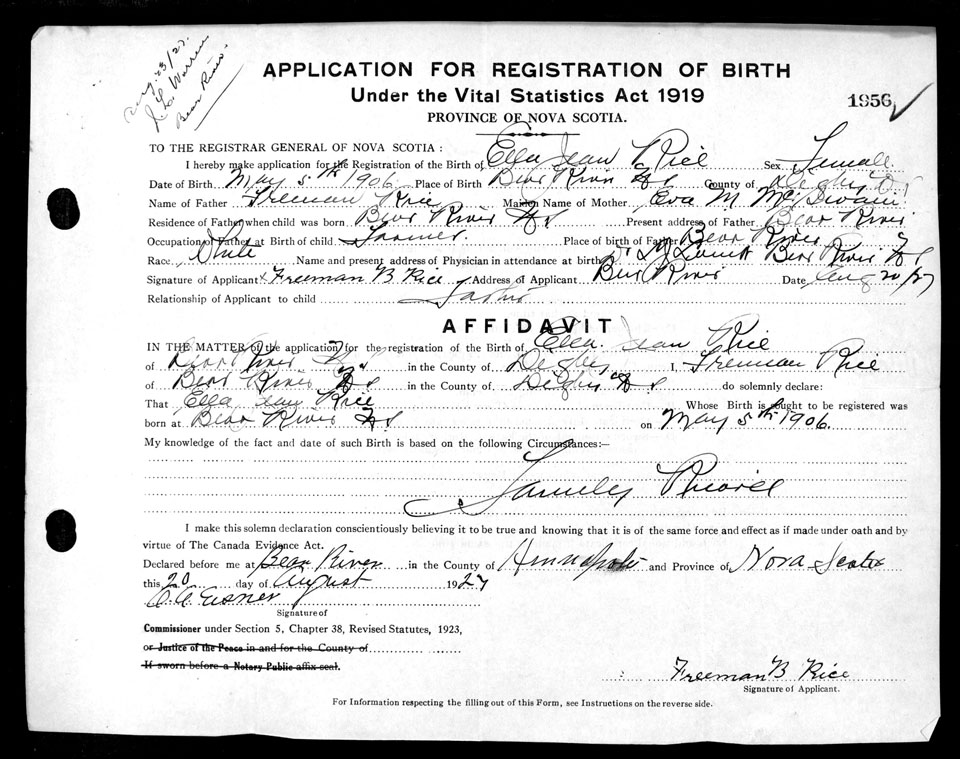 Aug. 23/27.
Warren
Bear River
APPLICATION FOR REGISTRATION OF BIRTH
Under the Vital Statistics Act 1919
PROVINCE OF NOVA SCOTIA.
1956 ✓
TO THE REGISTRAR GENERAL OF NOVA SCOTIA :
I hereby make application for the Registration of the Birth of Ella Jean Rice Sex Female
Date of Birth May 5th 1906 Place of Birth Bear River NS County of Digby
Name of Father Freeman Rice Maiden Name of Mother Eva M
Residence of Father when child was born Bear River NS Present address of Father Bear River
Occupation of Father at Birth of child Farmer. Place of birth of Father Bear River
Race White Name and present address of Physician in attendance at birth Dr Bear River NS
Signature of Applicant x Freeman B Rice Address of Applicant Bear River Date Aug 20/27
Relationship of Applicant to child Father
AFFIDAVIT
IN THE MATTER of the application for the registration of the Birth of Ella Jean Rice
of Bear River NS in the County of Digby I, Freeman Rice
of Bear River NS in the County of Digby NS do solemnly declare:
That Ella Jean Rice Whose Birth is sought to be registered was
born at Bear River NS on May 5th 1906.
My knowledge of the fact and date of such Birth is based on the following Circumstances:—
Family
I make this solemn declaration conscientiously believing it to be true and knowing that it is of the same force and effect as if made under oath and by
virtue of The Canada Evidence Act.
Declared before me at Bear River in the County of Annapolis and Province of Nova Scotia
this 20 day of August 1927
Eisner
Signature of
Commissioner under Section 5, Chapter 38, Revised Statutes, 1923,
or Justice of the Peace in and for the County of
If sworn before a Notary Public affix seal.
Freeman B Rice
Signature of Applicant.
For Information respecting the filling out of this Form, see Instructions on the reverse side.